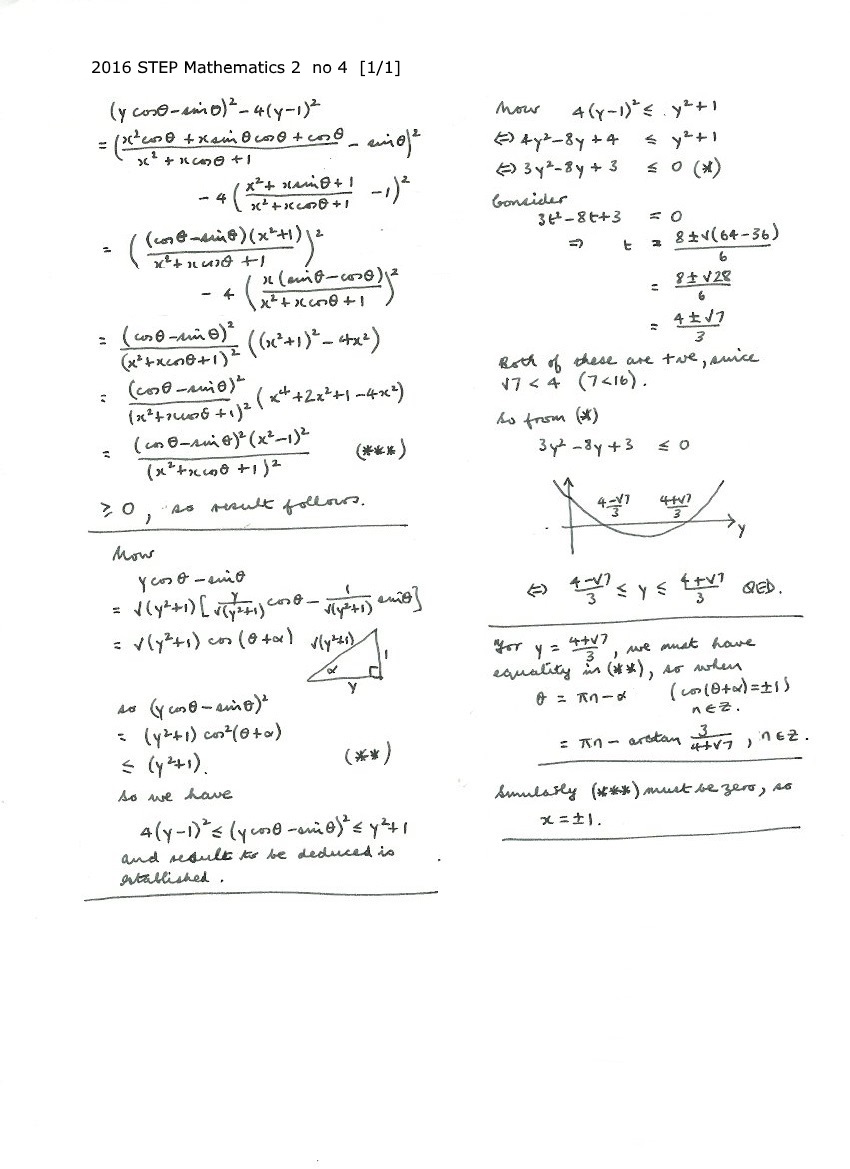 2016 STEP Mathematics 2 no 4 [1/1]
(y cosθ - sinθ)² - 4(y-1)²
= ((x²cosθ + x sinθ cosθ + cosθ)/(x² + x cosθ + 1) - sinθ)²
- 4 ((x² + x sinθ + 1)/(x² + x cosθ + 1) - 1)²
= ((cosθ - sinθ)(x²+1)/(x² + x cosθ + 1))²
- 4 (x(sinθ - cosθ)/(x² + x cosθ + 1))²
= (cosθ - sinθ)²/(x² + x cosθ + 1)² ((x²+1)² - 4x²)
= (cosθ - sinθ)²/(x² + x cosθ + 1)² (x⁴ + 2x² + 1 - 4x²)
= (cosθ - sinθ)²(x²-1)²/(x² + x cosθ + 1)² (***)
≥ 0, so result follows.
Now
y cosθ - sinθ
= √(y²+1) [y/√(y²+1) cosθ - 1/√(y²+1) sinθ]
= √(y²+1) cos(θ+α)
√(y²+1)
1
α
y
so (y cosθ - sinθ)²
= (y²+1) cos²(θ+α)
≤ (y²+1). (**)
So we have
4(y-1)² ≤ (y cosθ - sinθ)² ≤ y²+1
and result to be deduced is
established.
Now 4(y-1)² ≤ y²+1
⇔ 4y² - 8y + 4 ≤ y²+1
⇔ 3y² - 8y + 3 ≤ 0 (*)
Consider
3t² - 8t + 3 = 0
⇒ t = (8 ± √(64-36))/6
= (8 ± √28)/6
= (4 ± √7)/3
Both of these are +ve, since
√7 < 4 (7<16).
So from (*)
3y² - 8y + 3 ≤ 0
(4-√7)/3 (4+√7)/3
y
⇔ (4-√7)/3 ≤ y ≤ (4+√7)/3 QED.
For y = (4+√7)/3, we must have
equality in (**), so when
θ = πn - α (cos(θ+α) = ±1)
n ∈ Z.
= πn - arctan 3/(4+√7), n ∈ Z.
Similarly (***) must be zero, so
x = ±1.